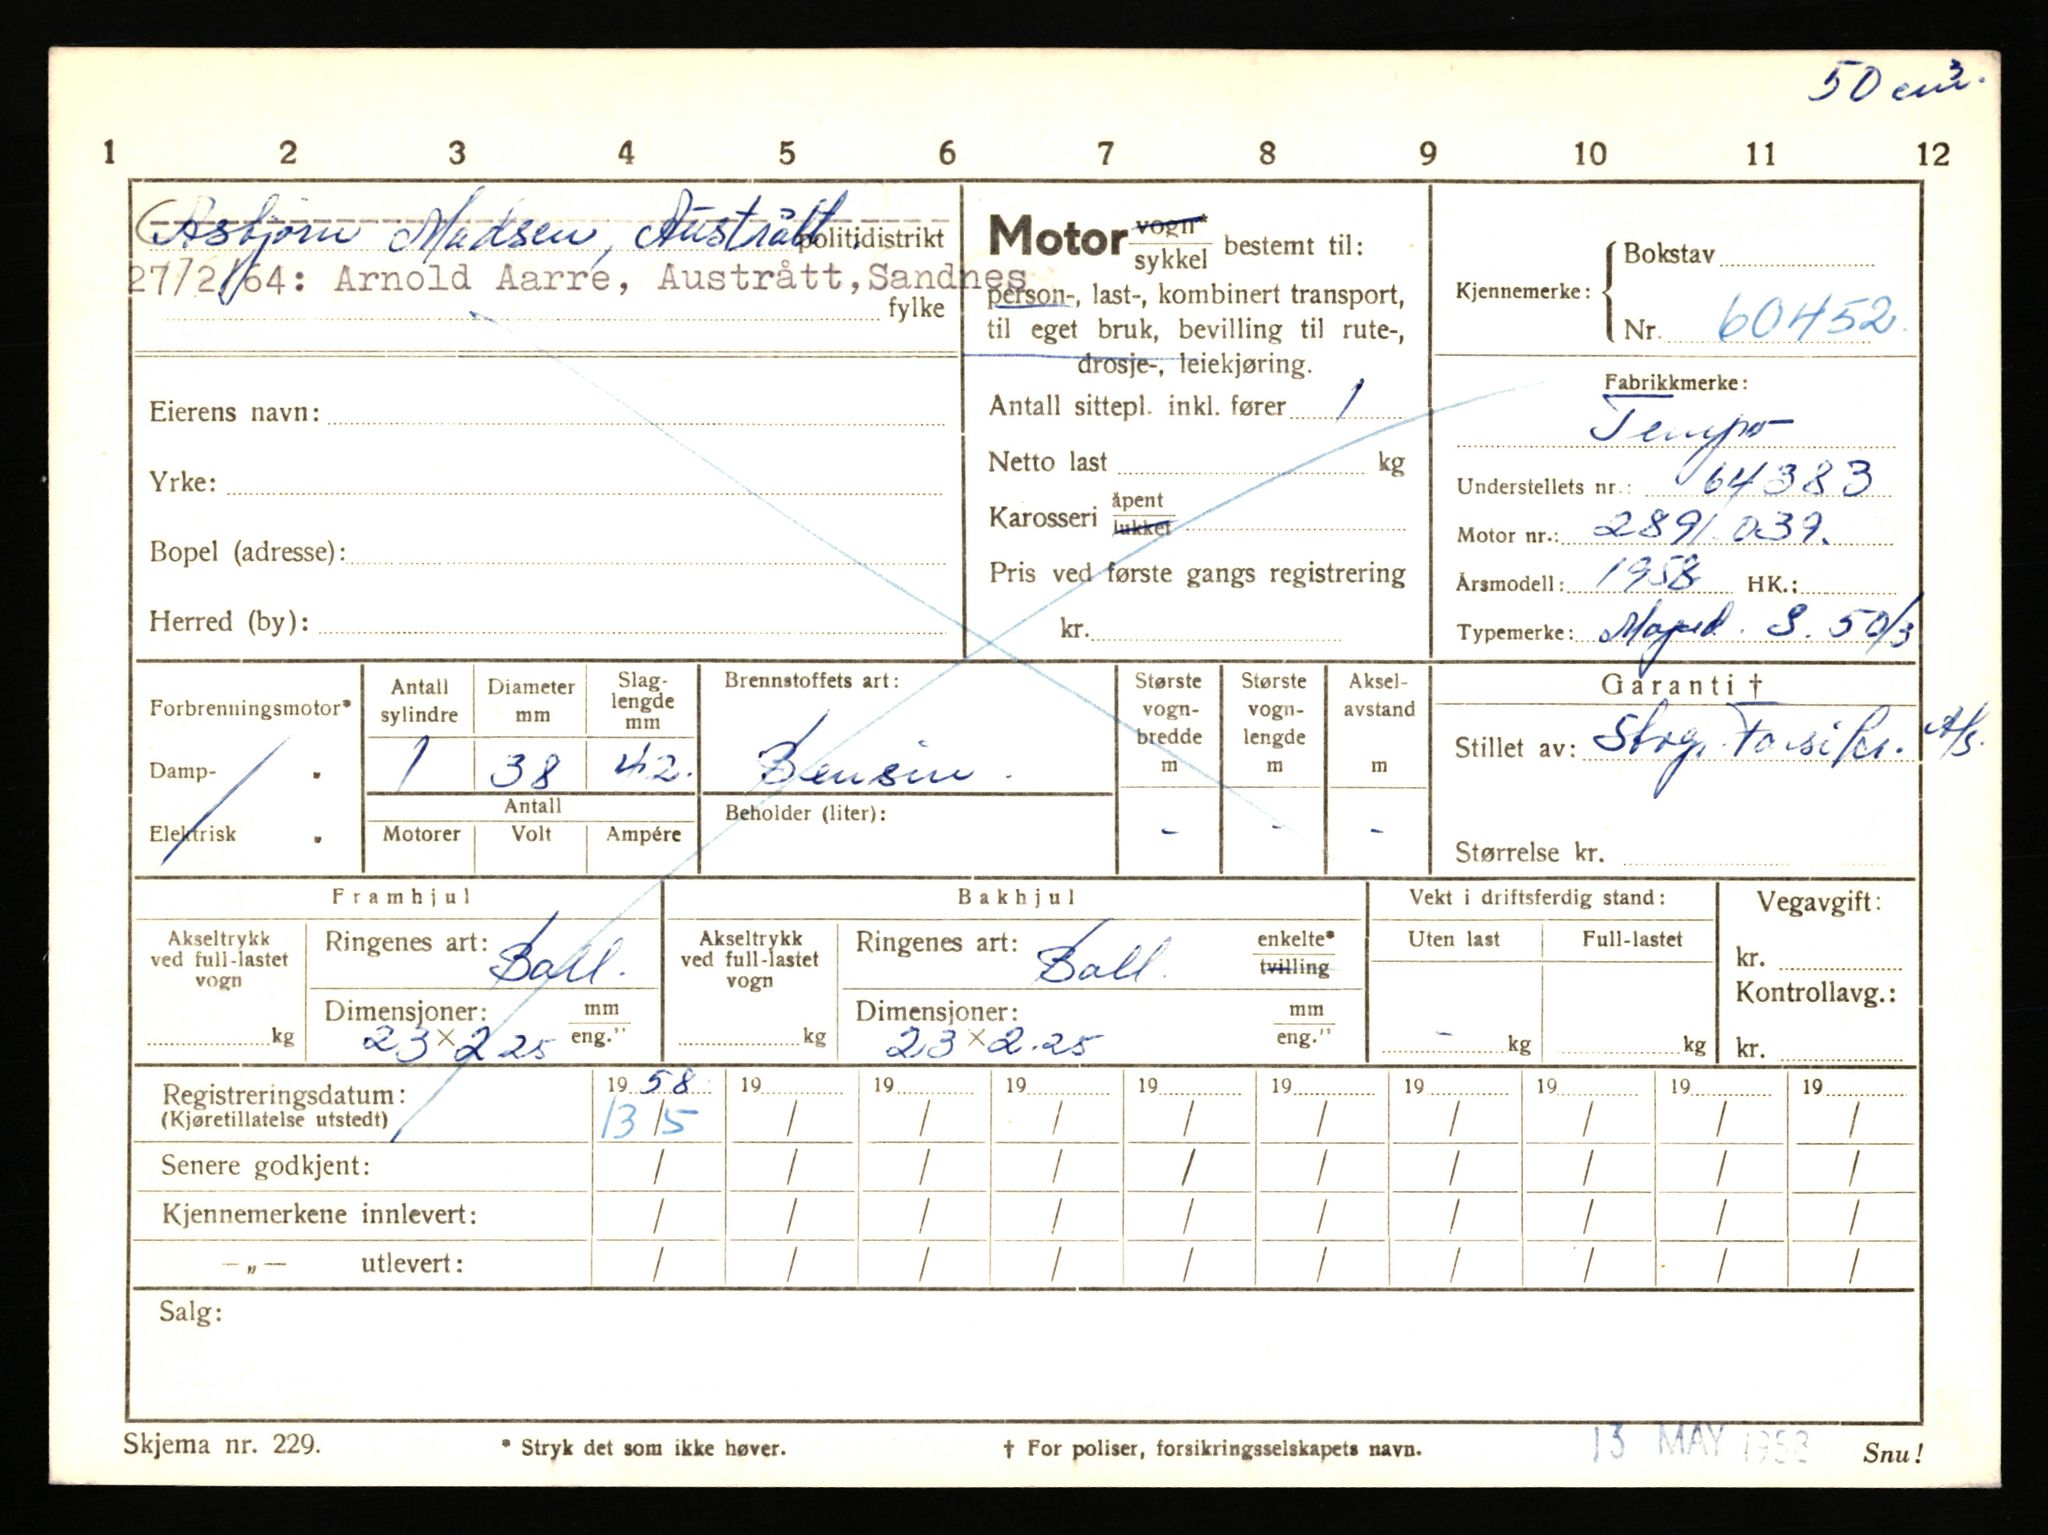 50 cm3.
1 2 3 4 5 6 7 8 9 10 11 12
Asbjørn Madsen, Austrått. politidistrikt
27/2/64: Arnold Aarre, Austrått, Sandnes
fylke
Eierens navn:
Yrke:
Bopel (adresse):
Herred (by):
Motor vogn* sykkel bestemt til:
person-, last-, kombinert transport,
til eget bruk, bevilling til rute-,
drosje-, leiekjøring.
Antall sittepl. inkl. fører 1
Netto last kg
Karosseri åpent lukket
Pris ved første gangs registrering
kr.
Kjennemerke: Bokstav
Nr. 60452.
Fabrikkmerke:
Tempo
Understellets nr.: 64383
Motor nr.: 2891.039.
Årsmodell: 1958 HK.:
Typemerke: Moped. S. 50/3
Forbrenningsmotor*
Damp- "
Elektrisk "
Antall sylindre
Diameter mm
Slag-
lengde
mm
1 38 42.
Antall
Motorer Volt Ampére
Brennstoffets art:
Bensin.
Beholder (liter):
Største
vogn-
bredde
m
-
Største
vogn-
lengde
m
-
Aksel-
avstand
m
-
Garanti †
Stillet av: Forsikr. A/S.
Størrelse kr.
Framhjul
Akseltrykk
ved full-lastet
vogn
kg
Ringenes art: Ball.
Dimensjoner: mm
23 x 2.25 eng."
Bakhjul
Akseltrykk
ved full-lastet
vogn
kg
Ringenes art: Ball. enkelte*
tvilling
Dimensjoner: mm
23 x 2.25 eng."
Vekt i driftsferdig stand:
Uten last Full-lastet
- kg kg
Vegavgift:
kr.
Kontrollavg.:
kr.
Registreringsdatum: 19 58 19 19 19 19 19 19 19 19 19
(Kjøretillatelse utstedt) 13/5 / / / / / / / / /
Senere godkjent: / / / / / / / / / /
Kjennemerkene innlevert: / / / / / / / / / /
—„— utlevert: / / / / / / / / / /
Salg:
13 MAY 1958
Skjema nr. 229. * Stryk det som ikke høver. † For poliser, forsikringsselskapets navn. Snu!